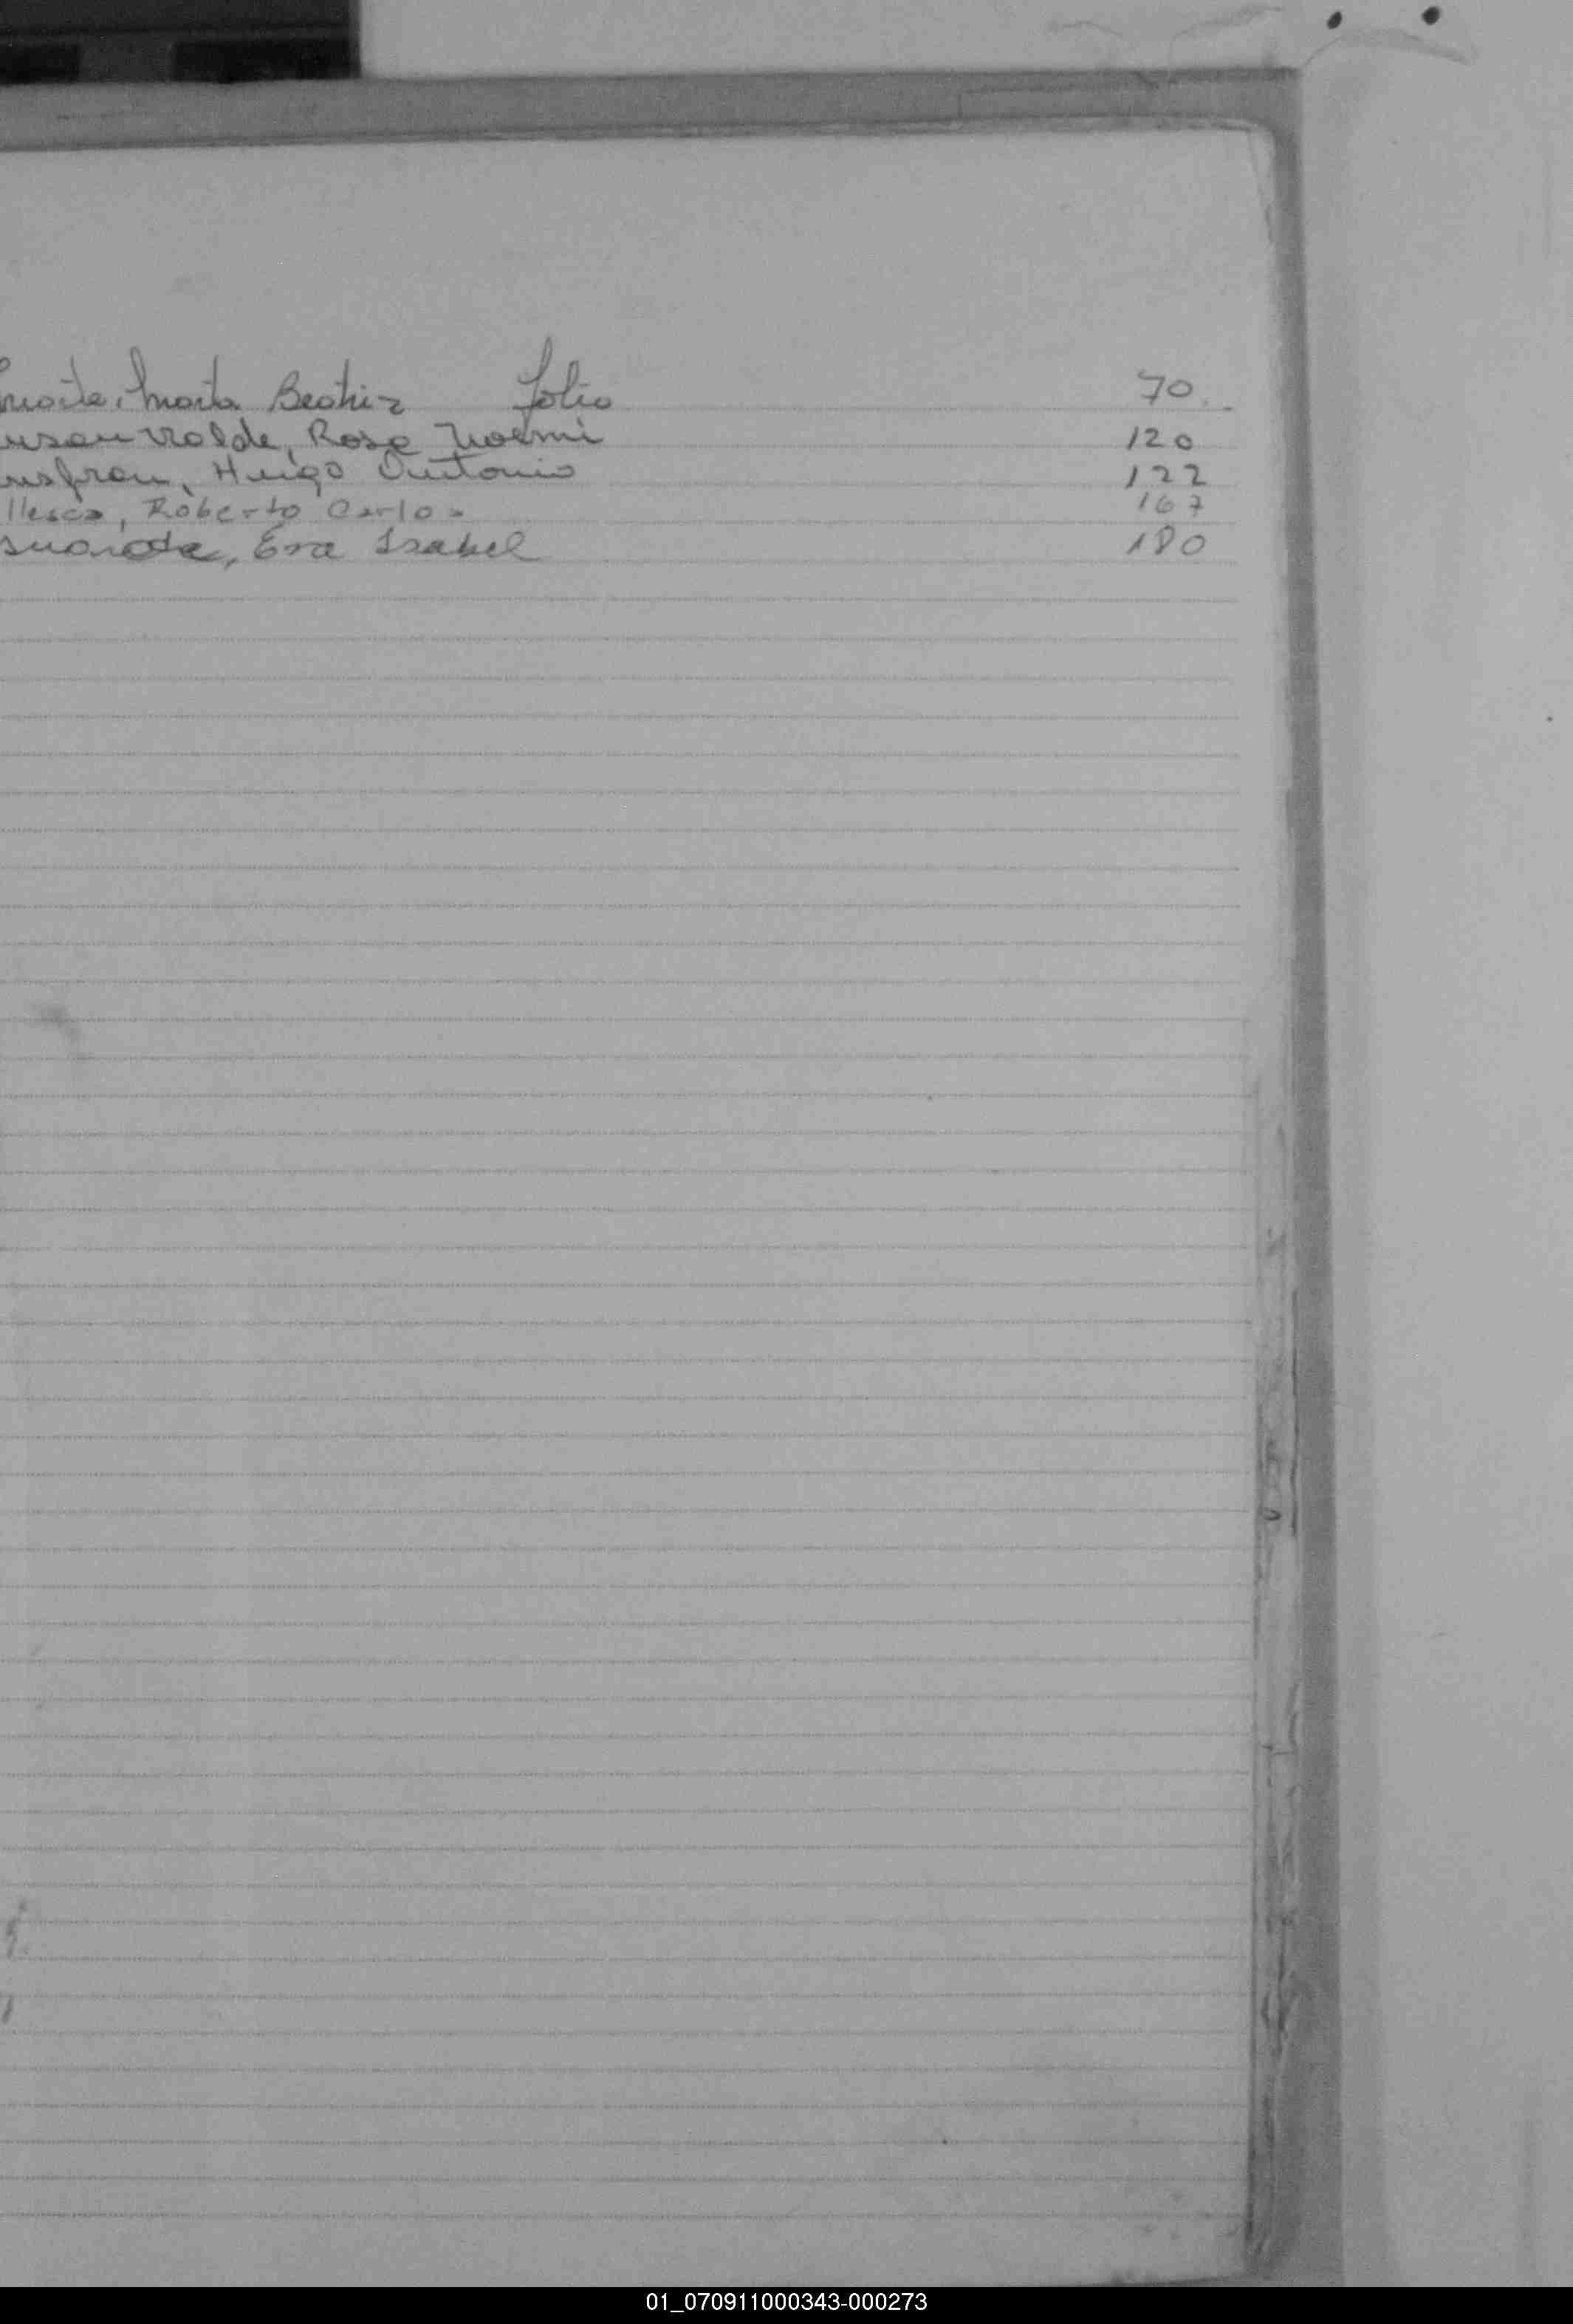 Marta Beatriz Folio 70
Rosa Noemi 120
nsfran, Hugo Antonio 122
llesca, Roberto Carlos 167
Eva Isabel 180
01_070911000343-000273